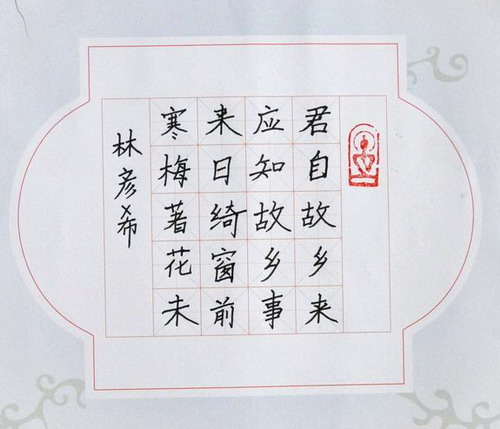 君自故乡来
应知故乡事
来日绮窗前
寒梅著花未
林彦希